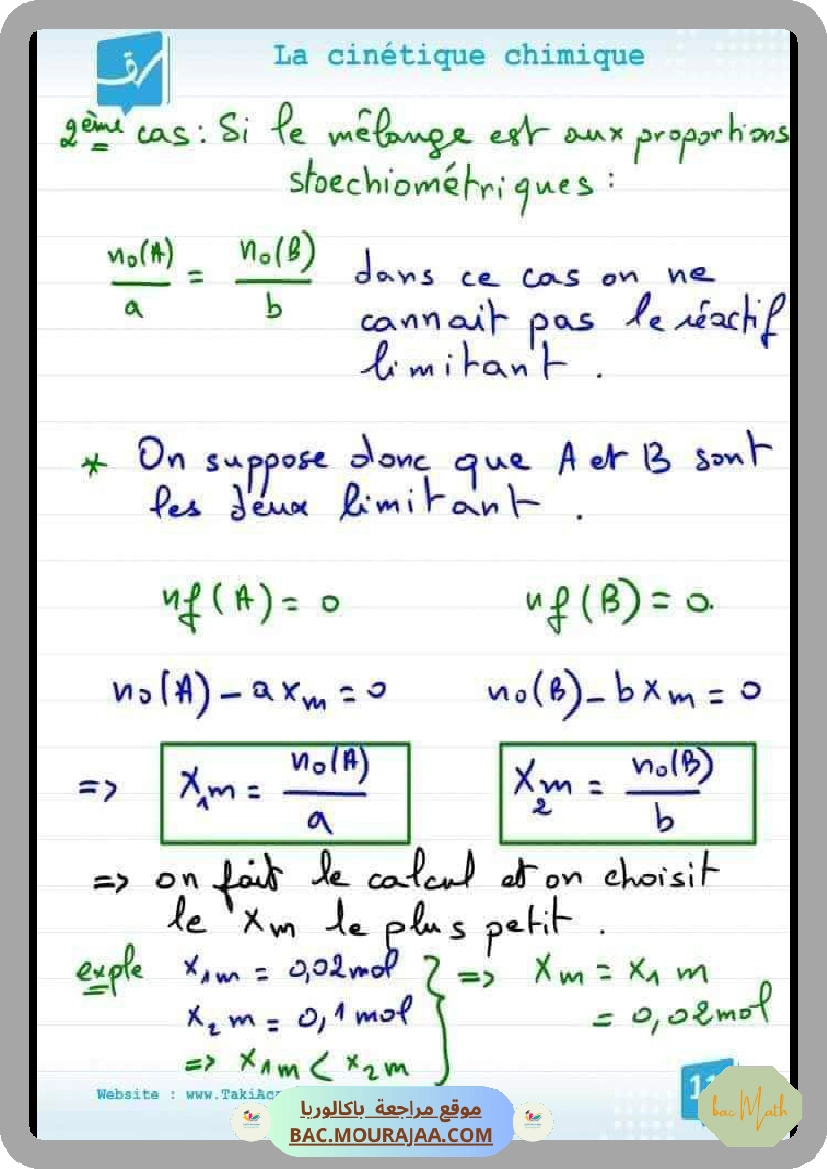 La cinétique chimique
2ème cas : Si le mélange est aux proportions
stoechiométriques :
n₀(A)/a = n₀(B)/b dans ce cas on ne
cannait pas le réactif
limitant .
* On suppose donc que A et B sont
les deux limitant .
nf(A) = 0 nf(B) = 0.
n₀(A) - a xm = 0 n₀(B) - b xm = 0
=> X₁m = n₀(A)/a X₂m = n₀(B)/b
=> on fait le calcul et on choisit
le Xm le plus petit .
exple x₁m = 0,02mol } => Xm = x₁ m
x₂ m = 0,1 mol = 0,02mol
=> x₁m < x₂m
Website : www.TakiAc
11
موقع مراجعة باكالوريا
BAC.MOURAJAA.COM
bac Math